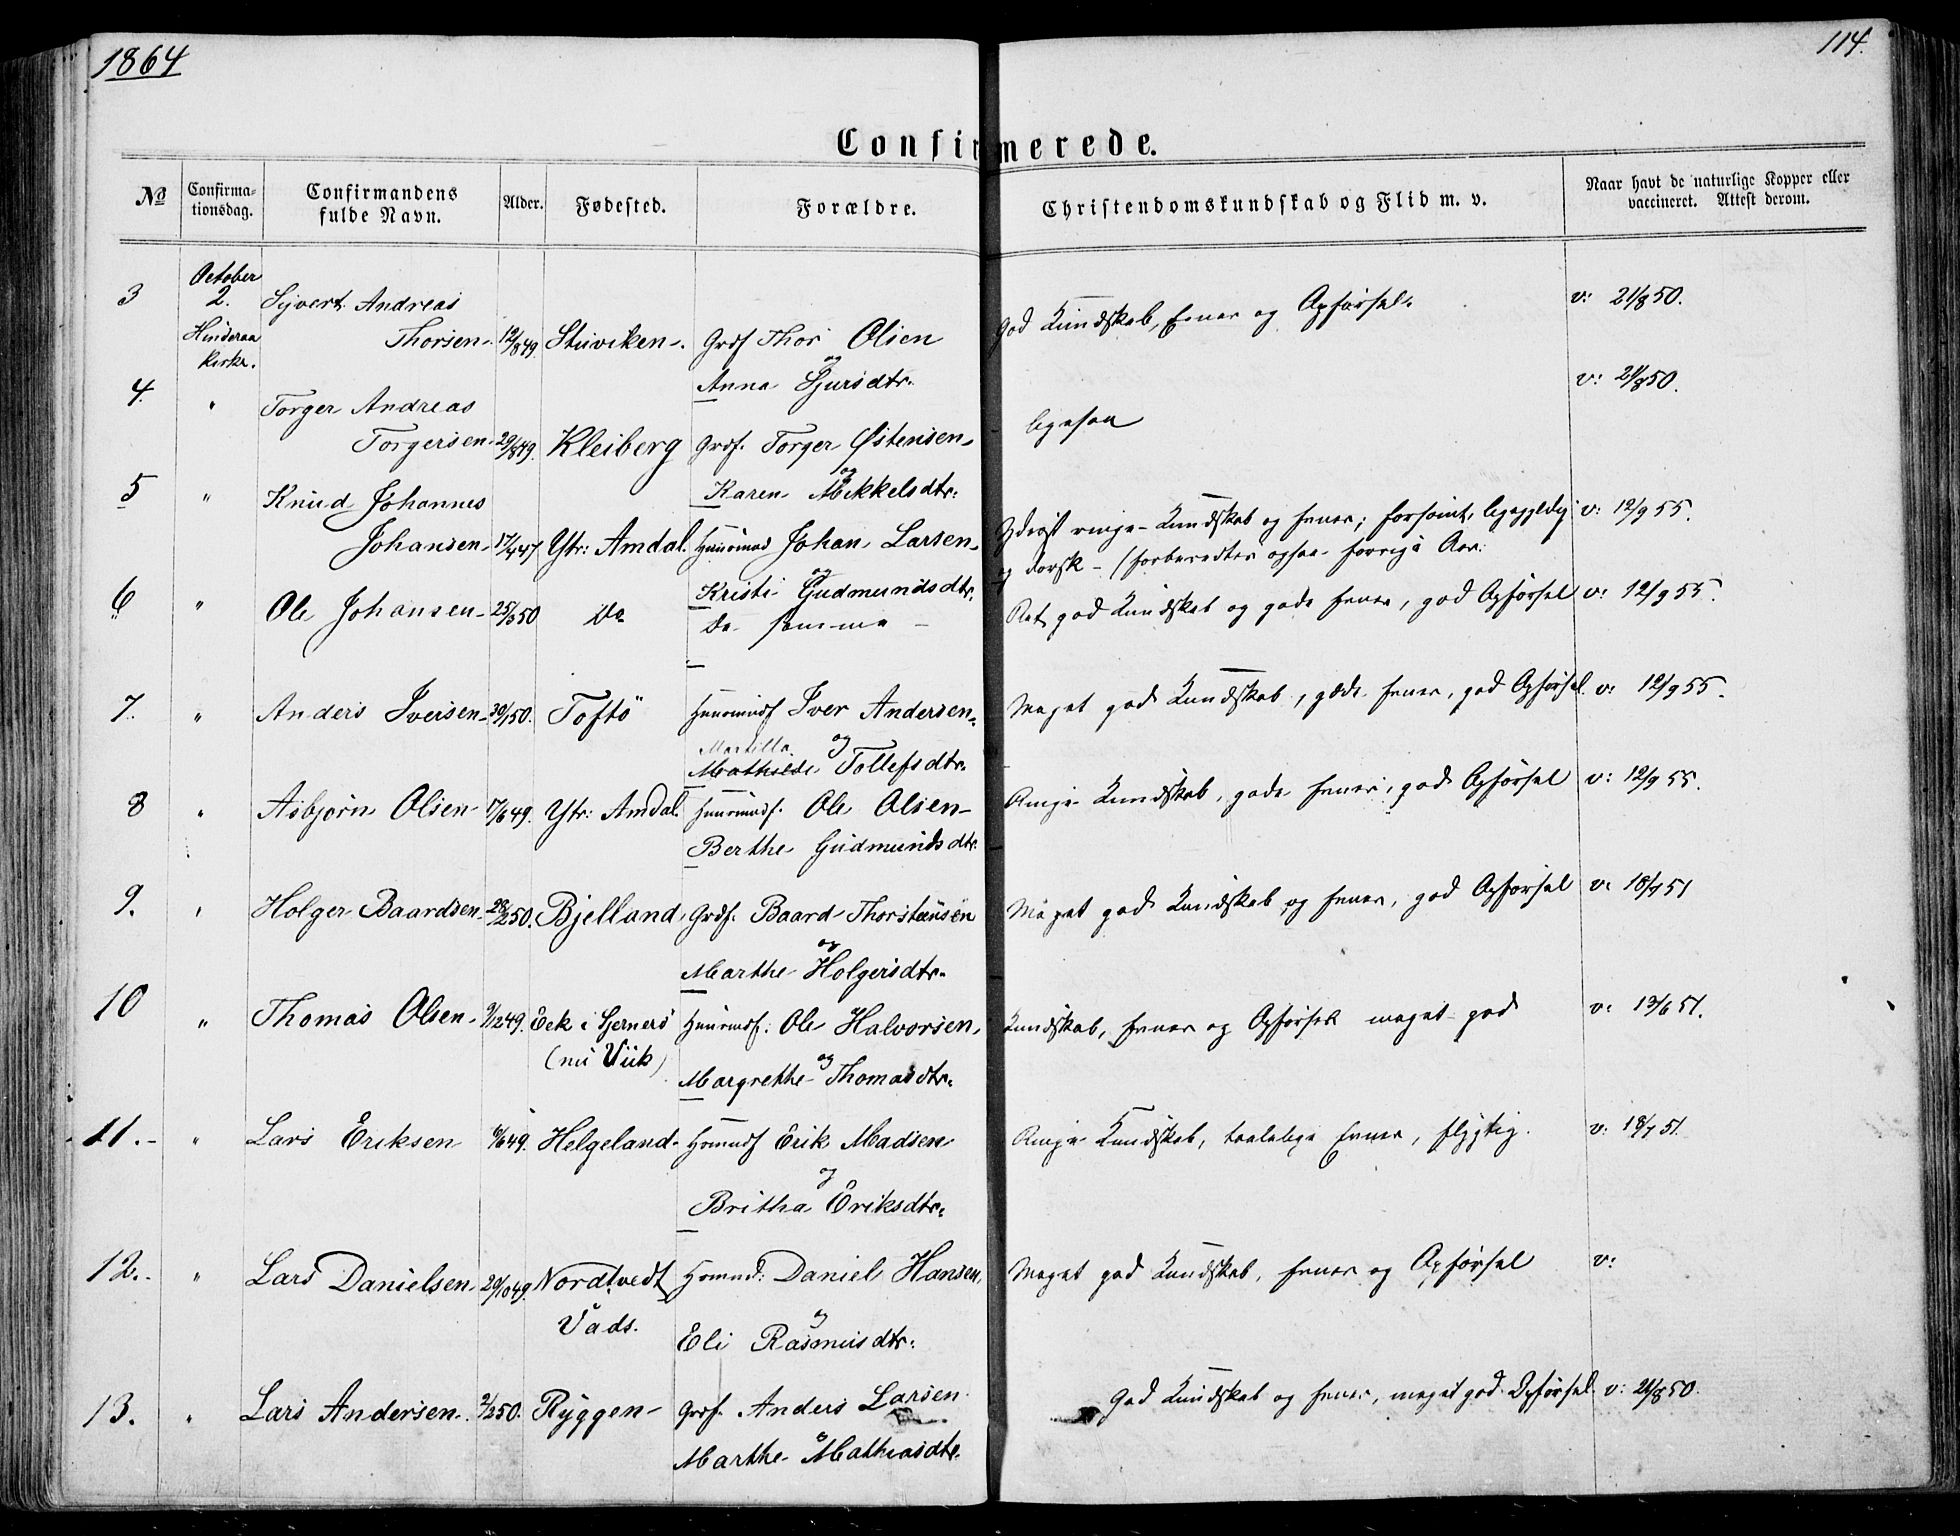 1864
114.
Confirmerede.
№
Confirmationsdag.
Confirmandens fulde Navn.
Alder.
Fødested.
Forældre.
Christendomskundskab og Flid m. v.
Naar havt de naturlige Kopper eller vaccineret. Attest derom.
3 October 2. Sjvert Andreas God Kundskab, Evner og Opførsel. v: 21/8 50.
Hinderaa Kirke. Thorsen 12/8 49. Stuviken Grdf Thor Olsen
og
Anna Sjursdtr.
4. " Torger Andreas ligesaa v: 21/8 50.
Torgersen 29/8 49. Kleiberg Grdf. Torger Østensen
og
Karen Mikkelsdtr:
5 " Knud Johannes
Johansen 17/4 47 Ytr: Amdal Huusmd Johan Larsen Yderst ringe Kundskab og Evner; forsømt, ligegyldig v: 12/9 55.
og dorsk (forberedtes ogsaa forrige Aar.
og
Kristi Gudmundsdtr.
6 " Ole Johansen 25/3 50 Do De samme Ret god Kundskab og gode Evner, god Opførsel v: 12/9 55.
7. " Anders Iversen 30/1 50. Toftö Huusmdf Iver Andersen Meget god Kundskab, gode Evner, god Opførsel v: 12/9 55.
Martilla og
Mathilde Tollefsdtr.
8 " Asbjørn Olsen 17/6 49. Ytr: Amdal Huusmdf. Ole Olsen Ringe Kundskab, gode Evner, god Opførsel v: 12/9 55.
Berthe Gudmundsdtr.
9. " Holger Baardsen 28/2 50. Bjelland Grdf. Baard Thorstensen Meget god Kundskab og Evner, god Opførsel v: 18/7 51
og
Marthe Holgersdtr.
10 " Thomas Olsen 9/12 49. Eek i Hjernerö Huusmdf: Ole Halvorsen Kundskab, Evner og Opførsel meget god v: 13/6 51.
(nu Viik) og
Margrethe Thomasdtr.
11. " Lars Eriksen 6/6 49. Helgeland Husmdf Erik Madsen Ringe Kundskab, taalelige Evner, flygtig. v: 18/7 51.
og
Britha Eriksdtr.
12. " Lars Danielsen 29/10 49. Nordtvedt Husmd: Daniel Hansen Meget god Kundskab, Evner og Opførsel v:
Vads. og
Eli Rasmusdtr.
13. " Lars Andersen 2/2 50. Ryggen Grdf. Anders Larsen God Kundskab og Evner, meget god Opførsel v: 21/8 50.
Marthe Mathiasdtr.